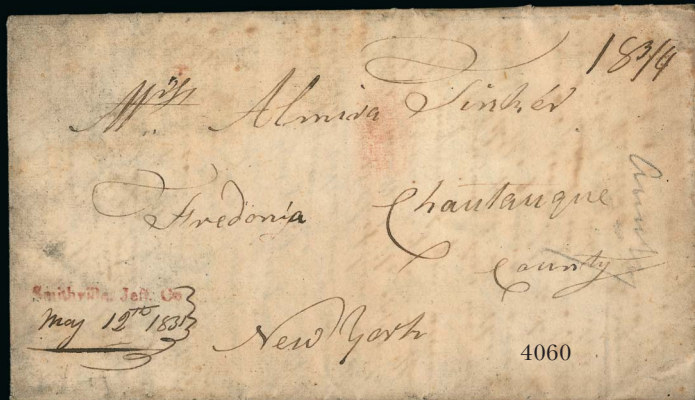 18 3/4
Miss Almira Tinker
Fredonia Chautauque
County
Smithville Jeff. Co
May 12th 183
New York
4060